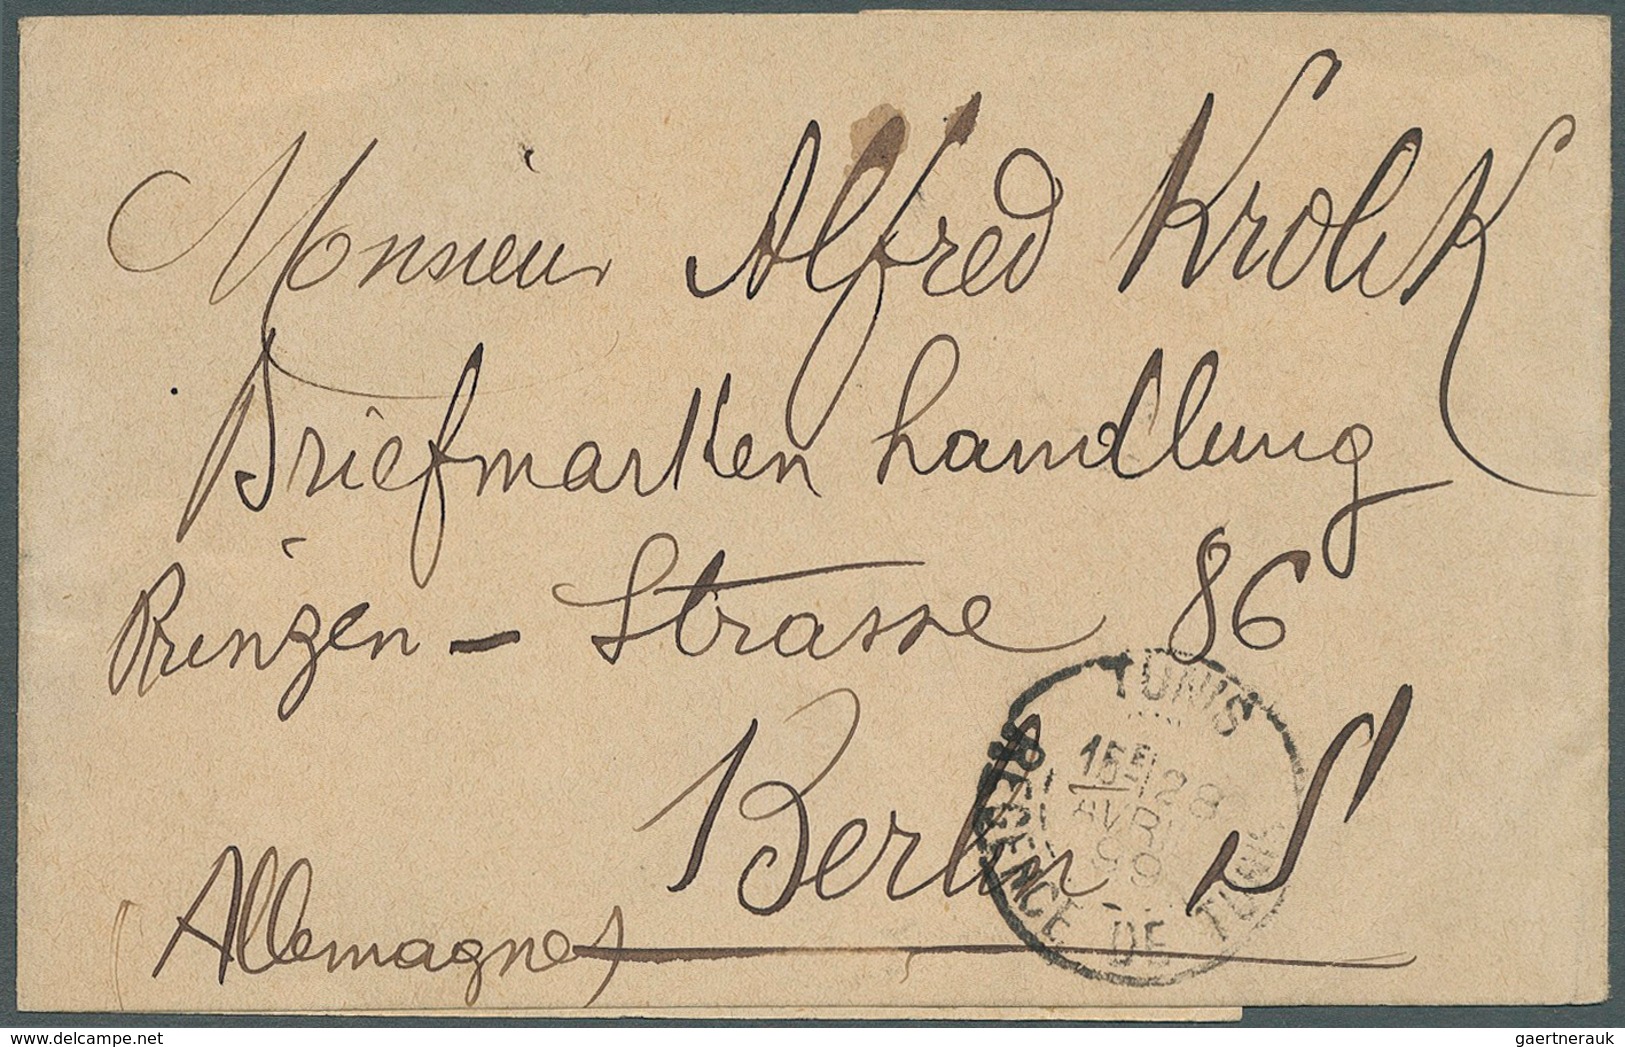 Monsieur Alfred Krolik
Briefmarken handlung
Prinzen - Strasse 86
Berlin S
(Allemagne)
TUNIS
28
AVRIL
99
REGENCE DE TUNIS
delcampe.net
gaertnerauk